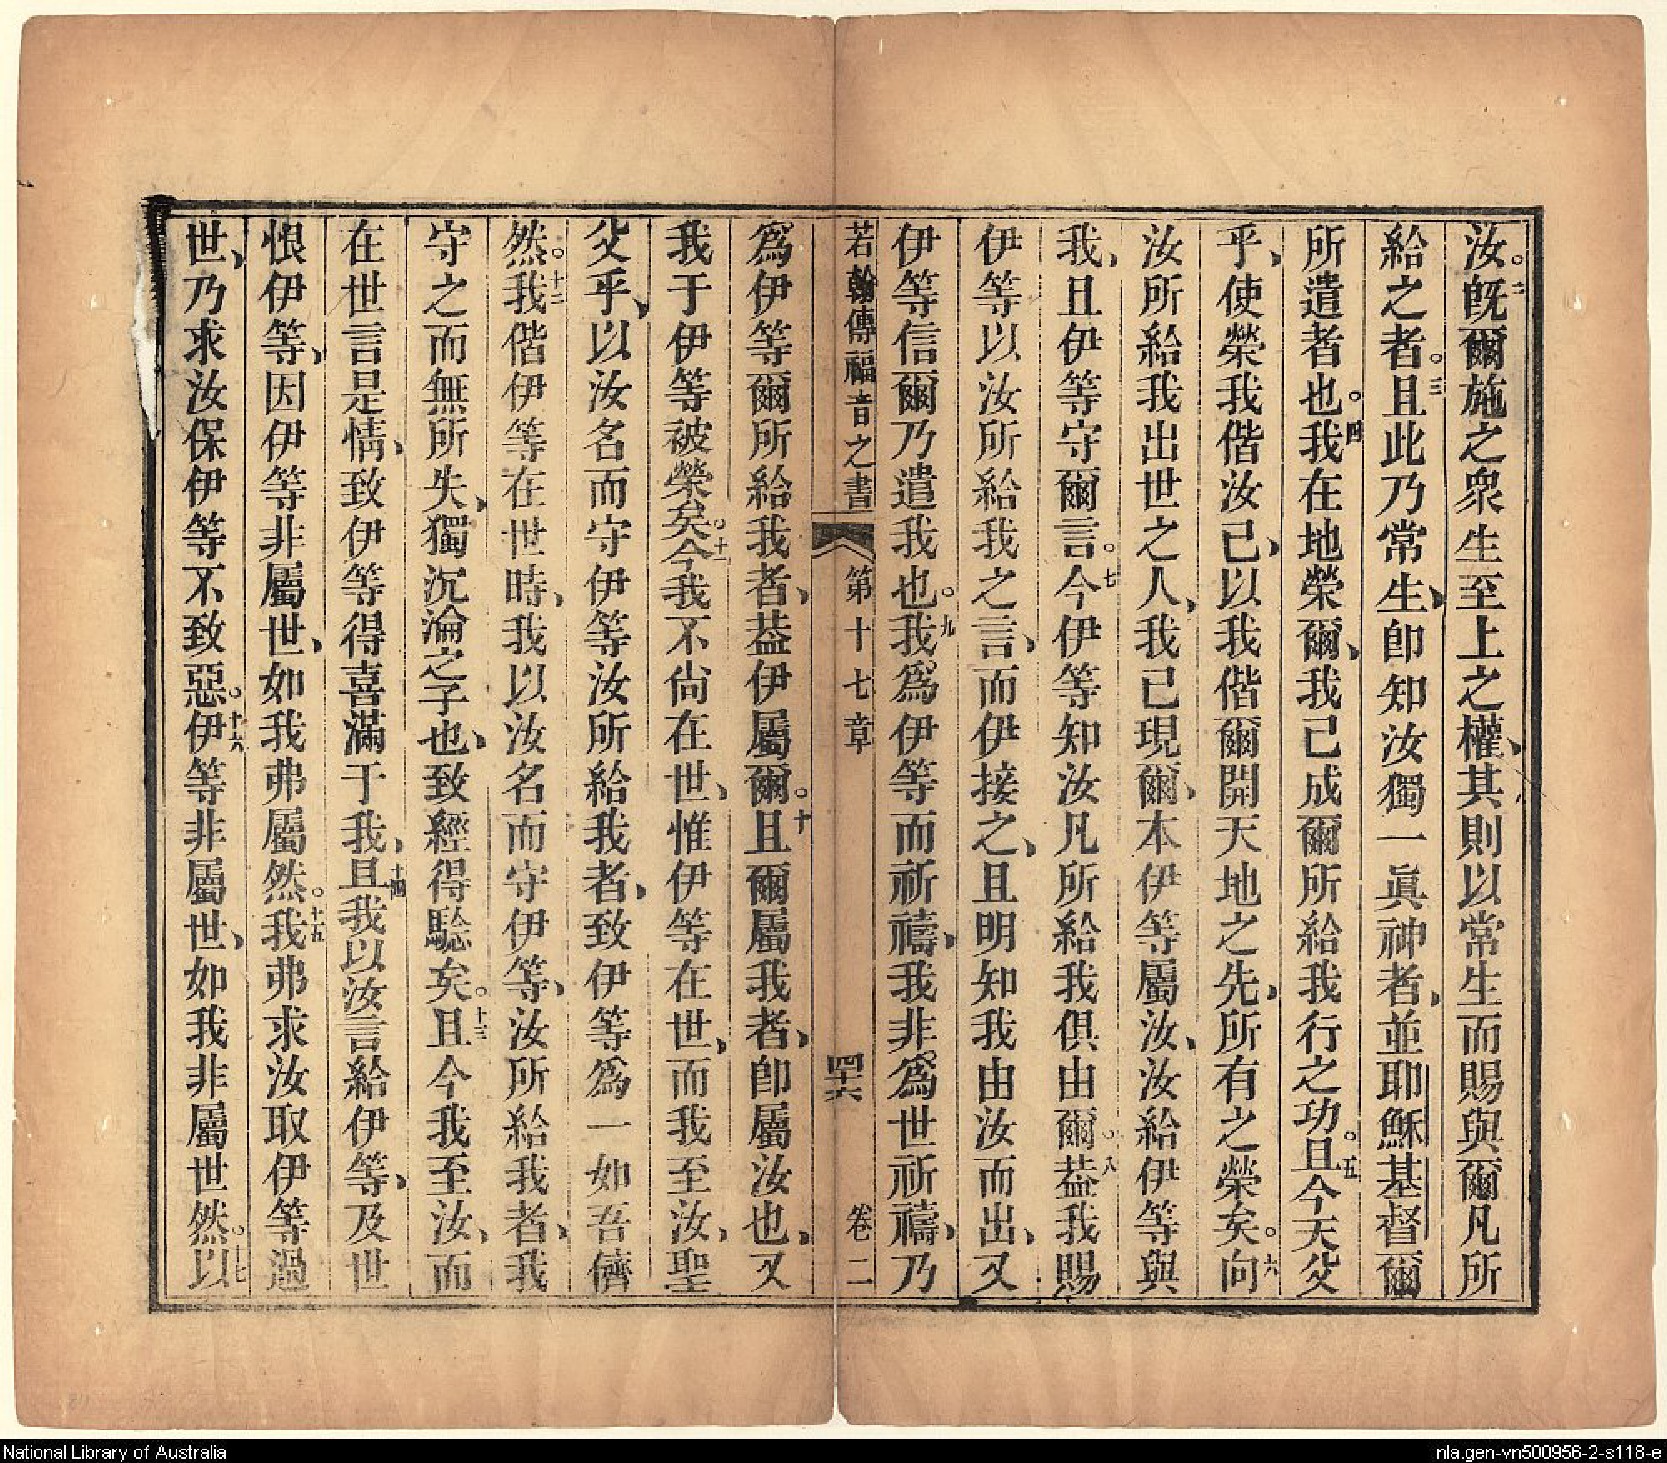 汝。二既爾施之衆生至上之權、其則以常生而賜與爾凡所
給之者。三且此乃常生、卽知汝獨一眞神者、並耶穌基督爾
所遣者也。四我在地榮爾、我已成爾所給我行之功。五且今天父
乎、使榮我偕汝已、以我偕爾開天地之先、所有之榮矣。六向
汝所給我出世之人、我已現爾、本伊等屬汝、汝給伊等與
我、且伊等守爾言。七今伊等知汝凡所給我俱由爾。八葢我賜
伊等以汝所給我之言、而伊接之、且明知我由汝而出、又
伊等信爾乃遣我也。九我爲伊等而祈禱、我非爲世祈禱、乃
若翰傳福音之書 第十七章 四十六 卷二
爲伊等爾所給我者、葢伊屬爾。十且爾屬我者、卽屬汝也、又
我于伊等被榮矣。十一今我不尙在世、惟伊等在世、而我至汝、聖
父乎、以汝名而守伊等汝所給我者、致伊等爲一如吾儕
然。十二我偕伊等在世時、我以汝名而守伊等、汝所給我者、我
守之而無所失、獨沉淪之子也、致經得騐矣。十三且今我至汝、而
在世言是情、致伊等得喜滿于我、十四且我以汝言給伊等、及世
恨伊等、因伊等非屬世、如我弗屬然。十五我弗求汝取伊等過
世、乃求汝保伊等不致惡。十六伊等非屬世、如我非屬世然。十七以
National Library of Australia
nla.gen-vn500956-2-s118-e